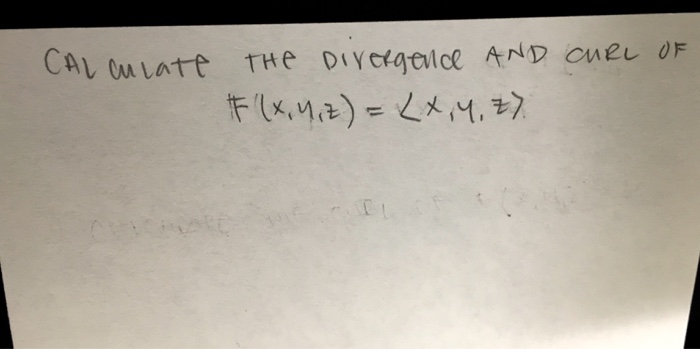 CALCULATE THE DIVERGENCE AND CURL OF
F(x,y,z) = <x,y,z>